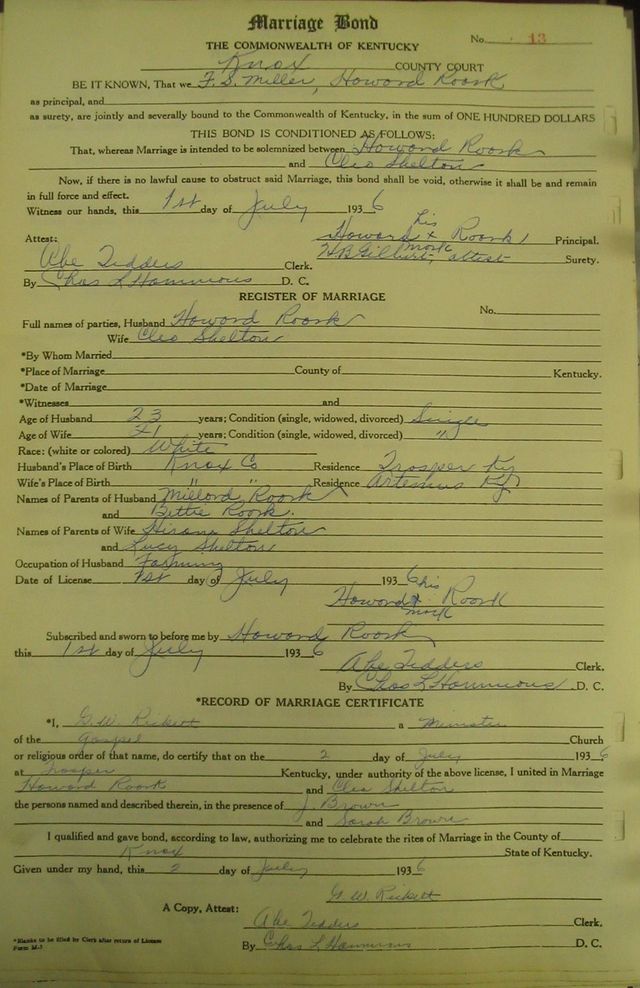 Marriage Bond
No. 13
THE COMMONWEALTH OF KENTUCKY
Knox COUNTY COURT
BE IT KNOWN, That we F. S. Miller, Howard Roark
as principal, and
as surety, are jointly and severally bound to the Commonwealth of Kentucky, in the sum of ONE HUNDRED DOLLARS
THIS BOND IS CONDITIONED AS FOLLOWS:
That, whereas Marriage is intended to be solemnized between Howard Roark
and Cleo Shelton
Now, if there is no lawful cause to obstruct said Marriage, this bond shall be void, otherwise it shall be and remain
in full force and effect.
Witness our hands, this 1st day of July 1936
his
Attest: Howard x Roark Principal.
mark
Abe Tedders Clerk. H B Gilbert, attest Surety.
By Chas L Hammons D. C.
REGISTER OF MARRIAGE
No.
Full names of parties, Husband Howard Roark
Wife Cleo Shelton
*By Whom Married
*Place of Marriage County of Kentucky.
*Date of Marriage
*Witnesses and
Age of Husband 23 years; Condition (single, widowed, divorced) Single
Age of Wife 21 years; Condition (single, widowed, divorced) "
Race: (white or colored) White
Husband's Place of Birth Knox Co Residence Trosper Ky
Wife's Place of Birth " " Residence Artemus Ky
Names of Parents of Husband Millard Roark
and Bettie Roark.
Names of Parents of Wife Hiram Shelton
and Lucy Shelton
Occupation of Husband Farming
Date of License 1st day of July 1936
his
Howard x Roark
mark
Subscribed and sworn to before me by Howard Roark
this 1st day of July 1936
Abe Tedders Clerk.
By Chas L Hammons D. C.
*RECORD OF MARRIAGE CERTIFICATE
*I, G. W. Rickett a Minister
of the Gospel Church
or religious order of that name, do certify that on the 2 day of July 1936
at Trosper Kentucky, under authority of the above license, I united in Marriage
Howard Roark and Cleo Shelton
the persons named and described therein, in the presence of J. Brown
and Sarah Brown
I qualified and gave bond, according to law, authorizing me to celebrate the rites of Marriage in the County of
Knox State of Kentucky.
Given under my hand, this 2 day of July 1936
G. W. Rickett
A Copy, Attest:
Abe Tedders Clerk.
*Blanks to be filled by Clerk after return of License
Form M-3
By Chas L Hammons D. C.